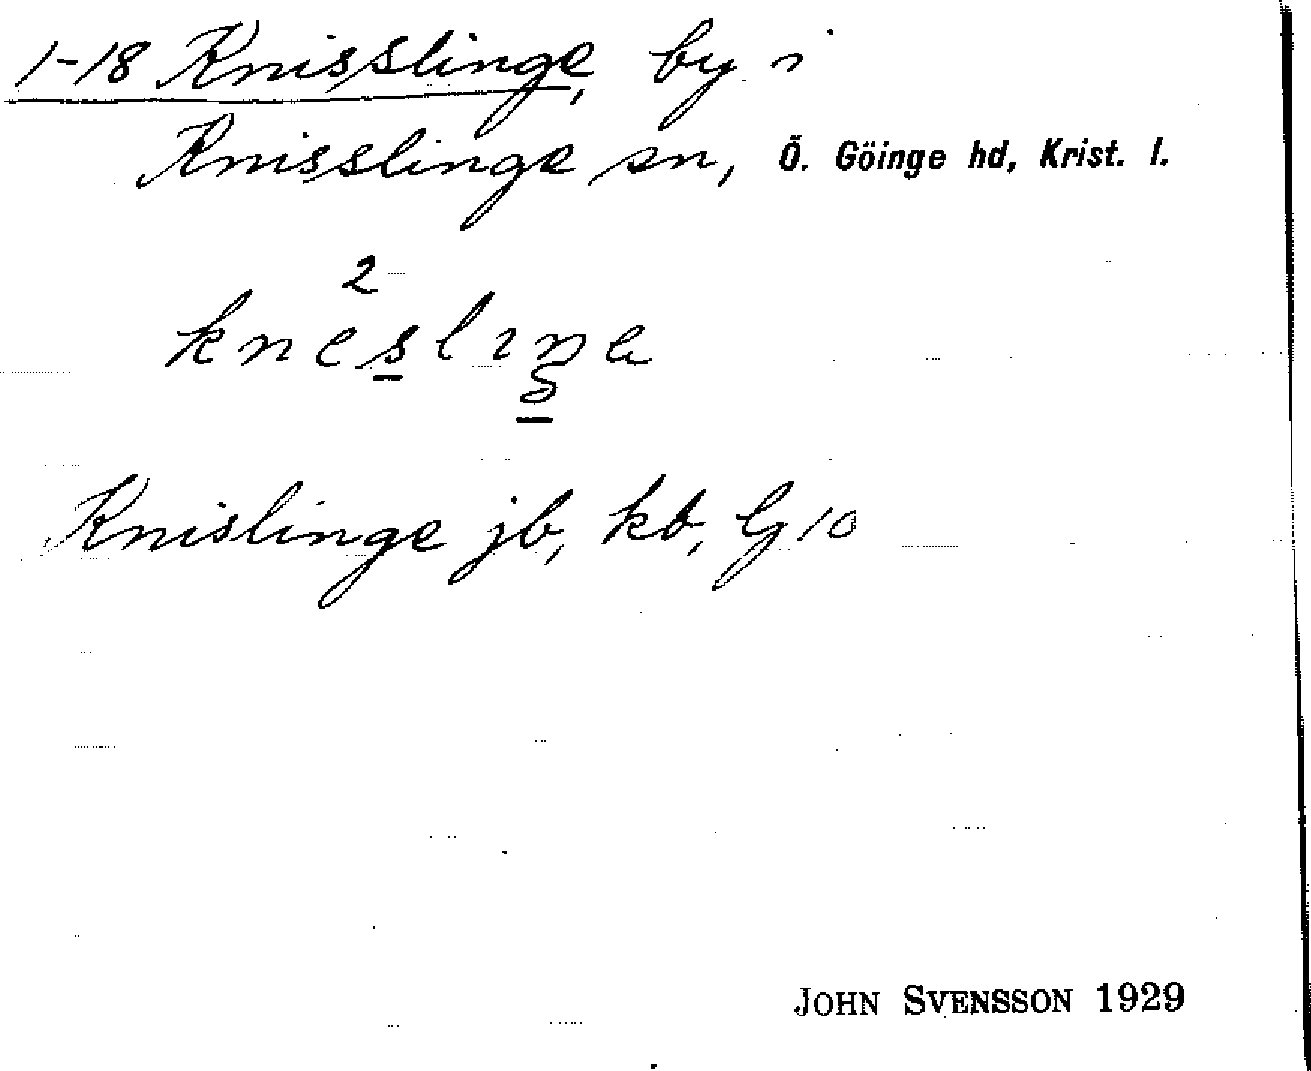 1-18 Knisslinge, by i
Knisslinge sn, Ö. Göinge hd, Krist. l.
2
kneslıŋa
Knislinge jb, kb, G 10
JOHN SVENSSON 1929